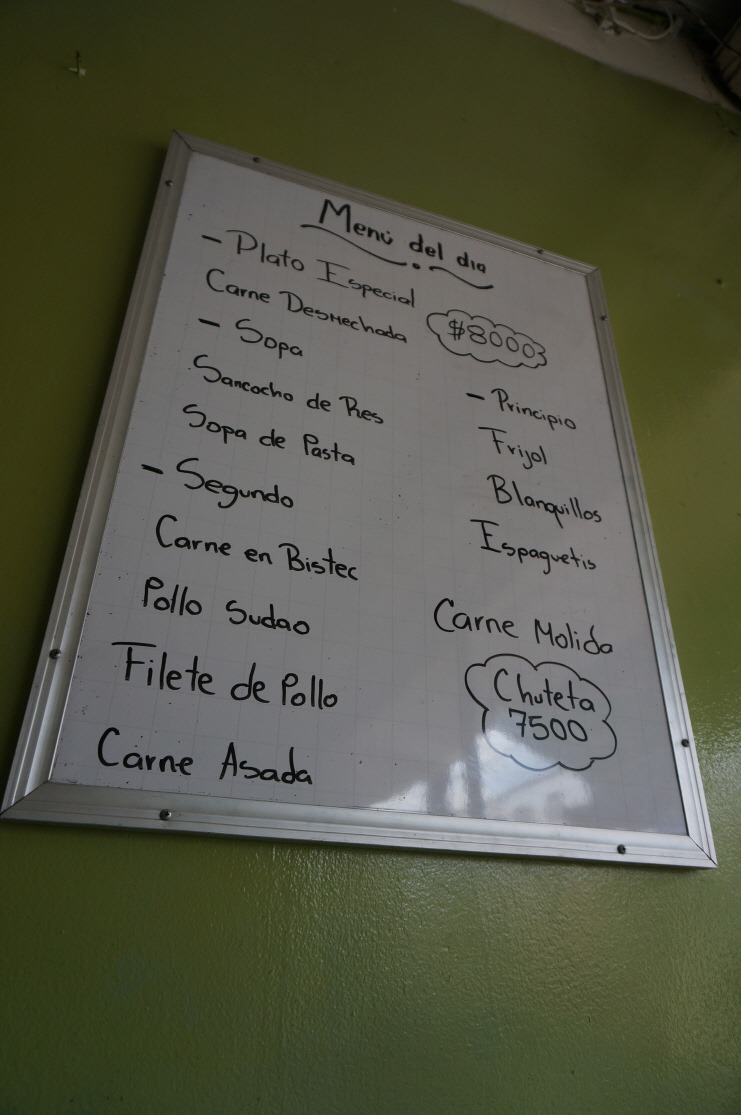 Menú del dia
- Plato Especial
Carne Desmechada
$8000
- Sopa
Sancocho de Res
Sopa de Pasta
- Principio
Frijol
Blanquillos
Espaguetis
- Segundo
Carne en Bistec
Pollo Sudao
Filete de Pollo
Carne Asada
Carne Molida
Chuleta
7500